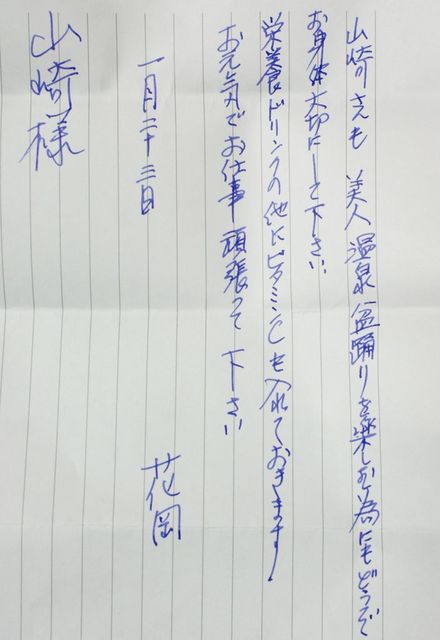 山崎さんも 美人温泉盆踊りを楽しむ為にもどうぞ
お身体大切にして下さい。
栄養ドリンクの他にビタミンCも入れておきます!
お元気でお仕事頑張って下さい
一月二十三日 花岡
山崎様